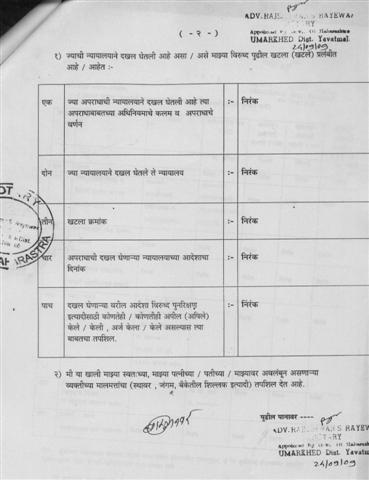 ADV. RAJESH S RAYEWAR
NOTARY
( - २ - )
Appointed by Govt. of Maharashtra
UMARKHED Dist. Yavatmal
24/09/09
१) ज्याची न्यायालयाने दखल घेतली आहे असा / असे माझ्या विरुध्द पुढील खटला (खटले) प्रलंबीत
आहे / आहेत :-
एक ज्या अपराधाची न्यायालयाने दखल घेतली आहे त्या :- निरंक
अपराधाबाबतच्या अधिनियमाचे कलम व अपराधाचे
वर्णन
दोन ज्या न्यायालयाने दखल घेतले ते न्यायालय :- निरंक
तीन खटला क्रमांक :- निरंक
चार अपराधाची दखल घेणाऱ्या न्यायालयाच्या आदेशाचा :- निरंक
दिनांक
पाच दखल घेणाऱ्या वरील आदेशा विरुध्द पुनरिक्षणा :- निरंक
इत्यादीसाठी कोणतेही / कोणतीही अपील (अपिले)
केले / केली , अर्ज केला / केले असल्यास त्या
बाबतचा तपशिल.
२) मी या खाली माझ्या स्वतःच्या, माझ्या पत्नीच्या / पतीच्या / माझ्यावर अवलंबून असणाऱ्या
व्यक्तीच्या मालमत्तांचा (स्थावर , जंगम, बँकेतील शिल्लक इत्यादी) तपशिल देत आहे.
पुढील पानावर ----
NOTARY
UMARKHED Dist. Yavatmal
24/09/09